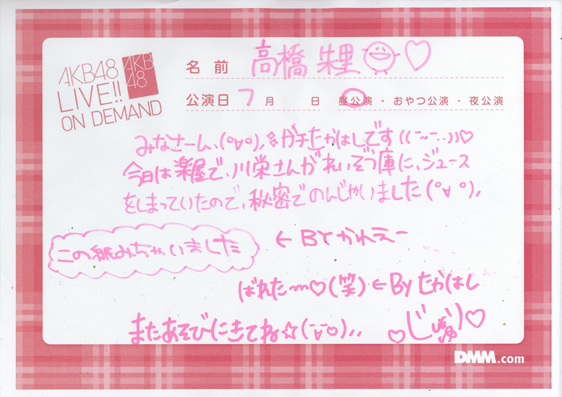 AKB48
LIVE!!
ON DEMAND
AKB
48
名前 高橋朱里 ♡
公演日 7月 日 昼公演・おやつ公演・夜公演
みなさーん、(°∀°)、ガチたかはしです((˘⌣˘))♡
今日は楽屋で、川栄さんがれいぞう庫に、ジュース
をしまっていたので、秘密でのんじゃいました(°∀°)、
この紙みちゃいました ← BY かわえー
ばれた〜♡(笑) ← By たかはし
またあそびにきてね☆(˘▽˘)、、
♡じゅり♡
DMM.com